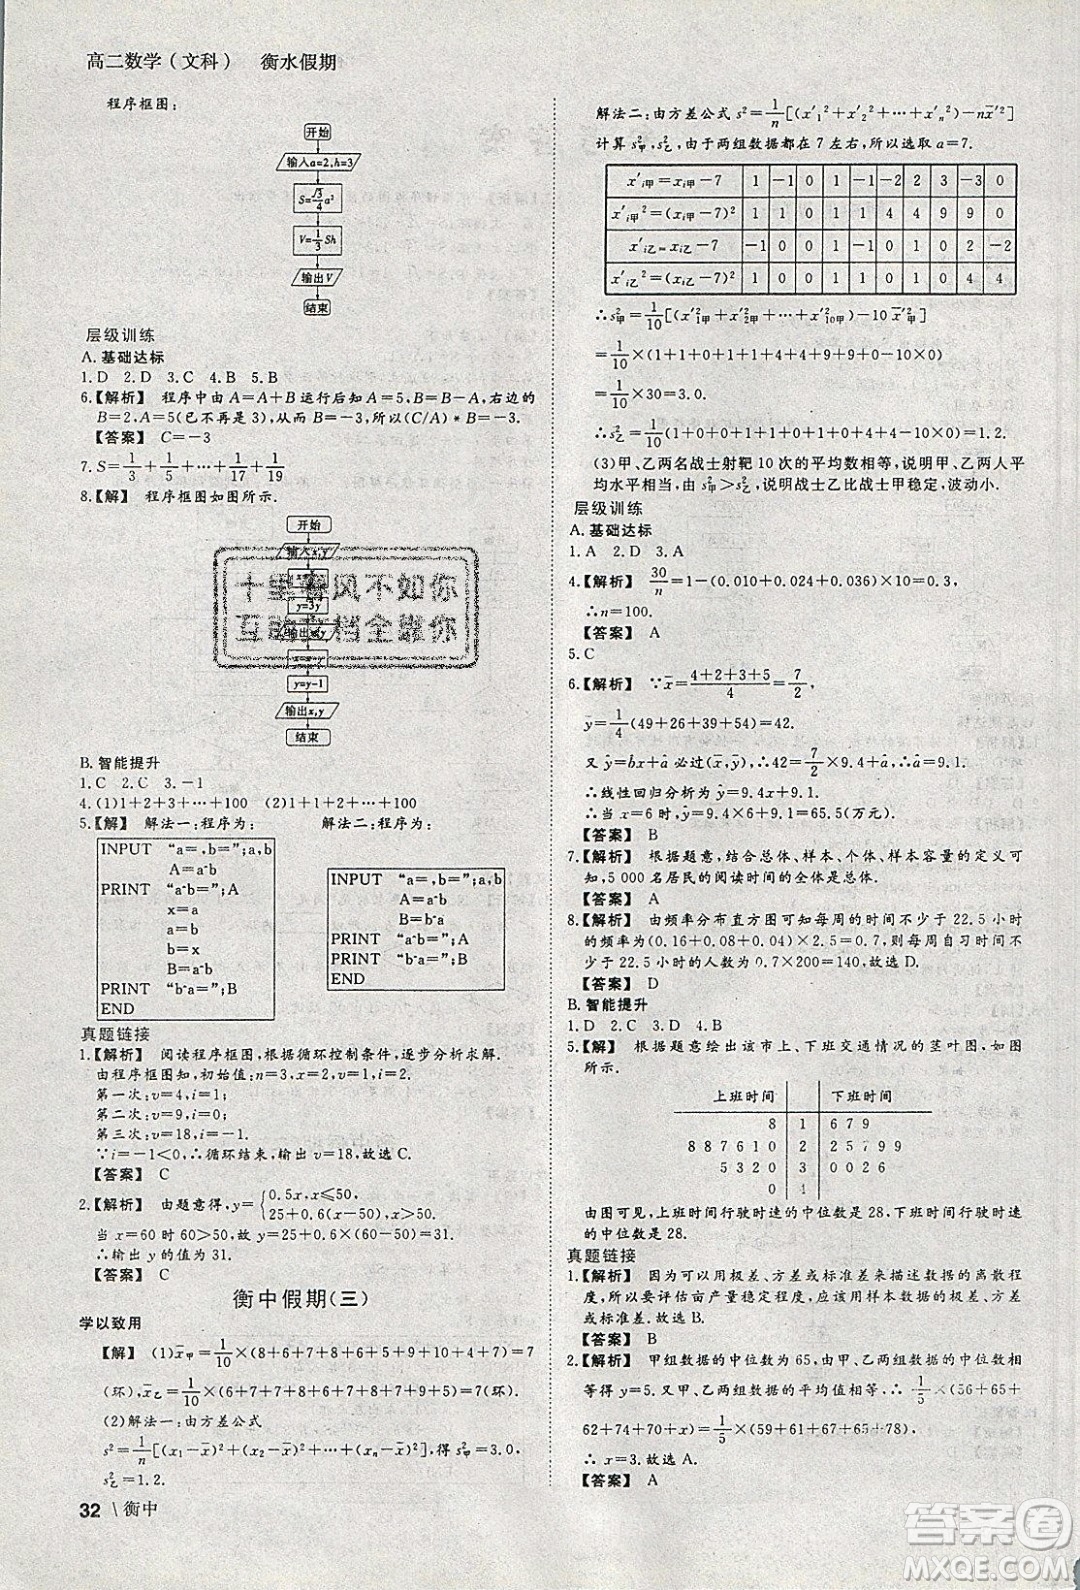 高二数学(文科) 衡水假期
程序框图:
开始
输入a=2,h=3
S=√3/4 a²
V=1/3 Sh
输出V
结束
层级训练
A. 基础达标
1. D 2. D 3. C 4. B 5. B
6.【解析】 程序中由 A=A+B 运行后知 A=5,B=B-A,右边的
B=2,A=5(已不再是 3),从而 B=-3,所以(C/A)*B=-3.
【答案】 C=-3
7. S=1/3+1/5+…+1/17+1/19
8.【解】 程序框图如图所示.
开始
输入x,y
y=3y
y=y-1
输出x,y
结束
十里春风不如你
互动文档全靠你
B. 智能提升
1. C 2. C 3. -1
4. (1)1+2+3+…+100 (2)1+2+3+…+100
5.【解】 解法一:程序为: 解法二:程序为:
INPUT "a=,b=";a,b
A=a^b
PRINT "a^b=";A
x=a
a=b
b=x
B=a^b
PRINT "b^a=";B
END
INPUT "a=,b=";a,b
A=a^b
PRINT "a^b=";A
B=b^a
PRINT "b^a=";B
END
真题链接
1.【解析】 阅读程序框图,根据循环控制条件,逐步分析求解.
由程序框图知,初始值:n=3,x=4,v=1,i=2.
第一次:v=4,i=1;
第二次:v=9,i=0;
第三次:v=18,i=-1.
∵i=-1<0,循环结束,输出v=18,故选 C.
【答案】 C
2.【解析】 由题意得,y={0.5x,x≤50, 25+0.6(x-50),x>50.
当 x=60 时 60>50,∴y=25+0.6(60-50)=31.
∴输出 y 的值为 31.
【答案】 C
衡中假期(三)
学以致用
【解】 (1)x̄甲=1/10×(8+6+7+8+6+5+9+10+4+7)=7
(环),x̄乙=1/10×(6+7+7+8+6+7+8+7+9+5)=7(环).
(2)解法一:由方差公式
s²=1/n[(x₁-x̄)²+(x₂-x̄)²+…+(xₙ-x̄)²],得 s²甲=3.0,
s²乙=1.2.
32 \ 衡中
解法二:由方差公式 s²=1/n[(x'₁²+x'₂²+…+x'ₙ²)-nx̄'²]
计算 s²甲,s²乙,由于两组数据都在 7 左右,所以选取 a=7.
x'i甲=xi甲-7 1 -1 0 1 -1 -2 2 3 -3 0
x'²i甲=(xi甲-7)² 1 1 0 1 1 4 4 9 9 0
x'i乙=xi乙-7 -1 0 0 1 -1 0 1 0 2 -2
x'²i乙=(xi乙-7)² 1 0 0 1 1 0 1 0 4 4
∴s²甲=1/10[(x'²1甲+x'²2甲+…+x'²10甲)-10x̄'²甲]
=1/10×(1+1+0+1+1+4+4+9+9+0-10×0)
=1/10×30=3.0.
∴s²乙=1/10(1+0+0+1+1+0+1+0+4+4-10×0)=1.2.
(3)甲、乙两名战士射靶 10 次的平均数相等,说明甲、乙两人平
均水平相当,又 s²甲>s²乙,说明战士乙比战士甲稳定,波动小.
层级训练
A. 基础达标
1. A 2. D 3. A
4.【解析】 30/n=1-(0.010+0.024+0.036)×10=0.3,
∴n=100.
【答案】 A
5. C
6.【解析】 ∵x̄=(4+2+3+5)/4=7/2,
ȳ=1/4(49+26+39+54)=42.
又 ŷ=b̂x+â 必过(x̄,ȳ),∴42=7/2×9.4+â,∴â=9.1.
∴线性回归分析为 ŷ=9.4x+9.1.
∴当 x=6 时,ŷ=9.4×6+9.1=65.5(万元).
【答案】 B
7.【解析】 根据题意,结合总体、样本、个体、样本容量的定义可
知,5 000 名居民的阅读时间的全体是总体.
【答案】 A
8.【解析】 由频率分布直方图可知每周的时间不少于 22.5 小时
的频率为(0.16+0.08+0.04)×2.5=0.7,则每周自习时间不
少于 22.5 小时的人数为 0.7×200=140,故选 D.
【答案】 D
B. 智能提升
1. D 2. C 3. D 4. B
5.【解】 根据题意绘出该市上、下班交通情况的茎叶图,如图
所示.
上班时间 下班时间
8 1 6 7 9
8 8 8 7 6 1 0 2 2 5 7 8 9 9
5 3 2 0 3 0 0 2 6
0 4
由图可见,上班时间行驶时速的中位数是 28,下班时间行驶时速
的中位数是 28.
真题链接
1.【解析】 因为可以用极差、方差或标准差来描述数据的离散程
度,所以要评估亩产量稳定程度,应该用样本数据的极差、方差
或标准差.故选 B.
【答案】 B
2.【解析】 甲组数据的中位数为 65,由甲、乙两组数据的中位数相
等得 y=5.又甲、乙两组数据的平均值相等,∴1/5×(56+65+
62+74+70+x)=1/5×(59+61+67+65+78),
∴x=3.故选 A.
【答案】 A
答案圈
MXQE.COM